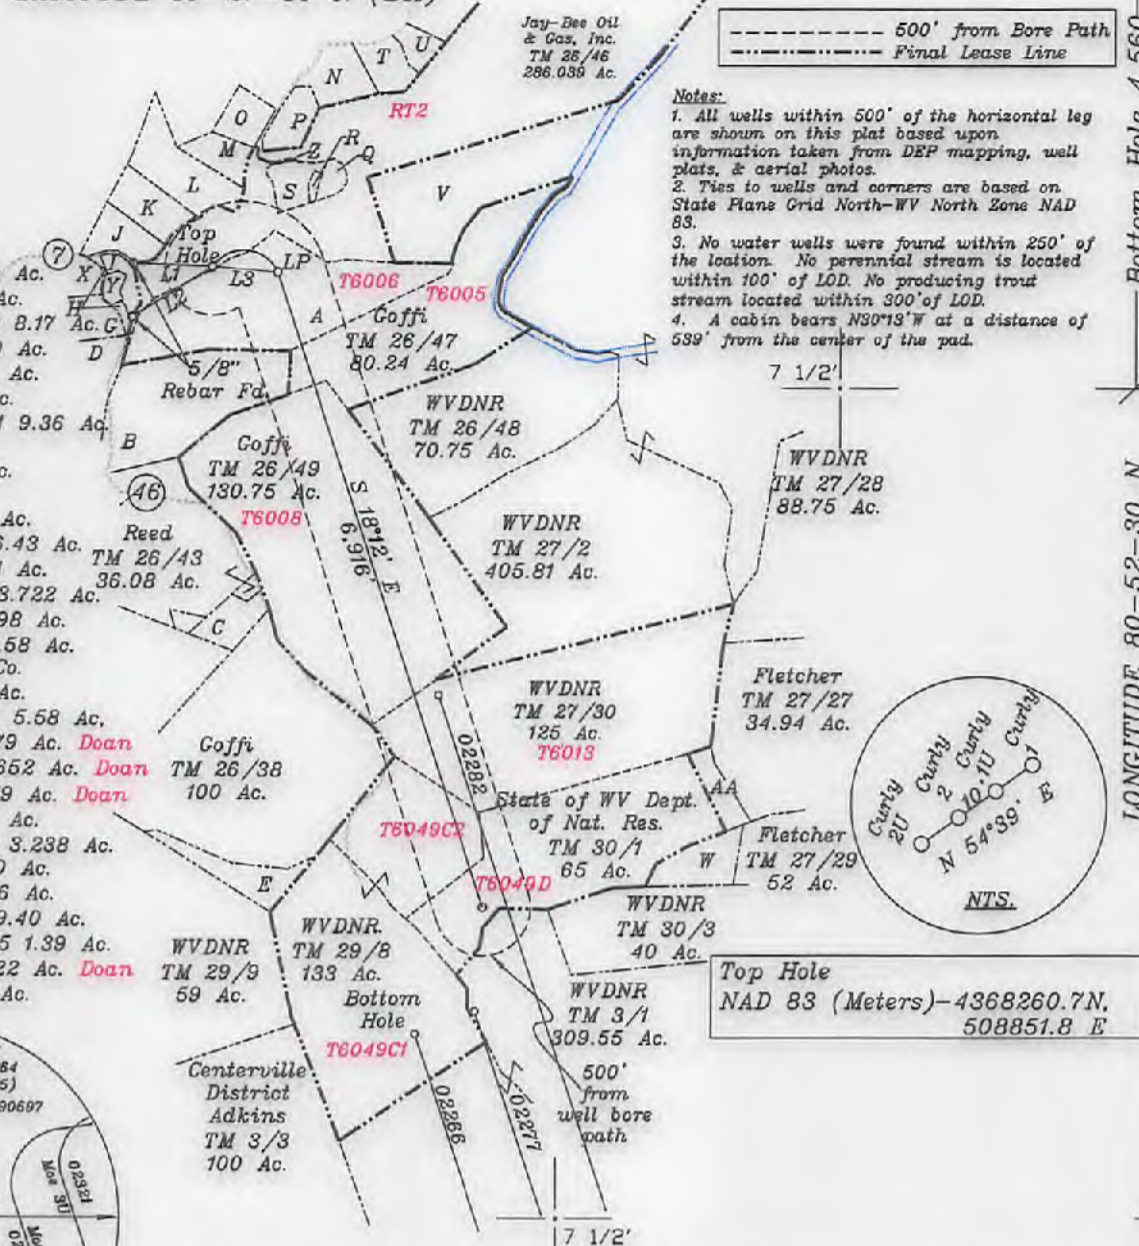 Jay-Bee Oil
& Gas, Inc.
TM 26/46
286.039 Ac.
500' from Bore Path
Final Lease Line
Notes:
1. All wells within 500' of the horizontal leg
are shown on this plat based upon
information taken from DEP mapping, well
plats, & aerial photos.
2. Ties to wells and corners are based on
State Plane Grid North-WV North Zone NAD
83.
3. No water wells were found within 250' of
the location. No perennial stream is located
within 100' of LOD. No producing trout
stream located within 300'of LOD.
4. A cabin bears N30°13'W at a distance of
539' from the center of the pad.
U
T
N
RT2
O
P
R
M
Z
Q
S
L
V
K
J
Top
Hole
7
X
L1
L3
LP
Y
L2
H
G
D
A
T6006
T6005
Goffi
TM 26/47
80.24 Ac.
5/8"
Rebar Fd.
B
WVDNR
TM 26/48
70.75 Ac.
7 1/2'
WVDNR
TM 27/28
88.75 Ac.
Goffi
TM 26/49
130.75 Ac.
T6008
46
S 18°12' E
6,916'
Reed
TM 26/43
36.08 Ac.
C
WVDNR
TM 27/2
405.81 Ac.
WVDNR
TM 27/30
125 Ac.
T6013
Fletcher
TM 27/27
34.94 Ac.
Goffi
TM 26/38
100 Ac.
02282
T6049C2
State of WV Dept.
of Nat. Res.
TM 30/1
65 Ac.
AA
W
Fletcher
TM 27/29
52 Ac.
T6049D
E
WVDNR
TM 30/3
40 Ac.
WVDNR
TM 29/9
59 Ac.
WVDNR
TM 29/8
133 Ac.
Bottom
Hole
T6049C1
WVDNR
TM 3/1
309.55 Ac.
Centerville
District
Adkins
TM 3/3
100 Ac.
02266
02277
500'
from
well bore
path
7 1/2'
Curly
2U
Curly
2
Curly
1U
Curly
1
10'
N 54°39' E
NTS.
Top Hole
NAD 83 (Meters)-4368260.7N,
508851.8 E
LONGITUDE 80-52-30 N
Bottom Hole 4,560
Ac.
Ac.
8.17 Ac.
Ac.
Ac.
9.36 Ac.
Ac.
6.43 Ac.
Ac.
3.722 Ac.
98 Ac.
.58 Ac.
Co.
Ac.
5.58 Ac,
79 Ac. Doan
652 Ac. Doan
9 Ac. Doan
Ac.
3.238 Ac.
Ac.
6 Ac.
9.40 Ac.
5 1.39 Ac.
22 Ac. Doan
Ac.
90697
02321
Moe 3U